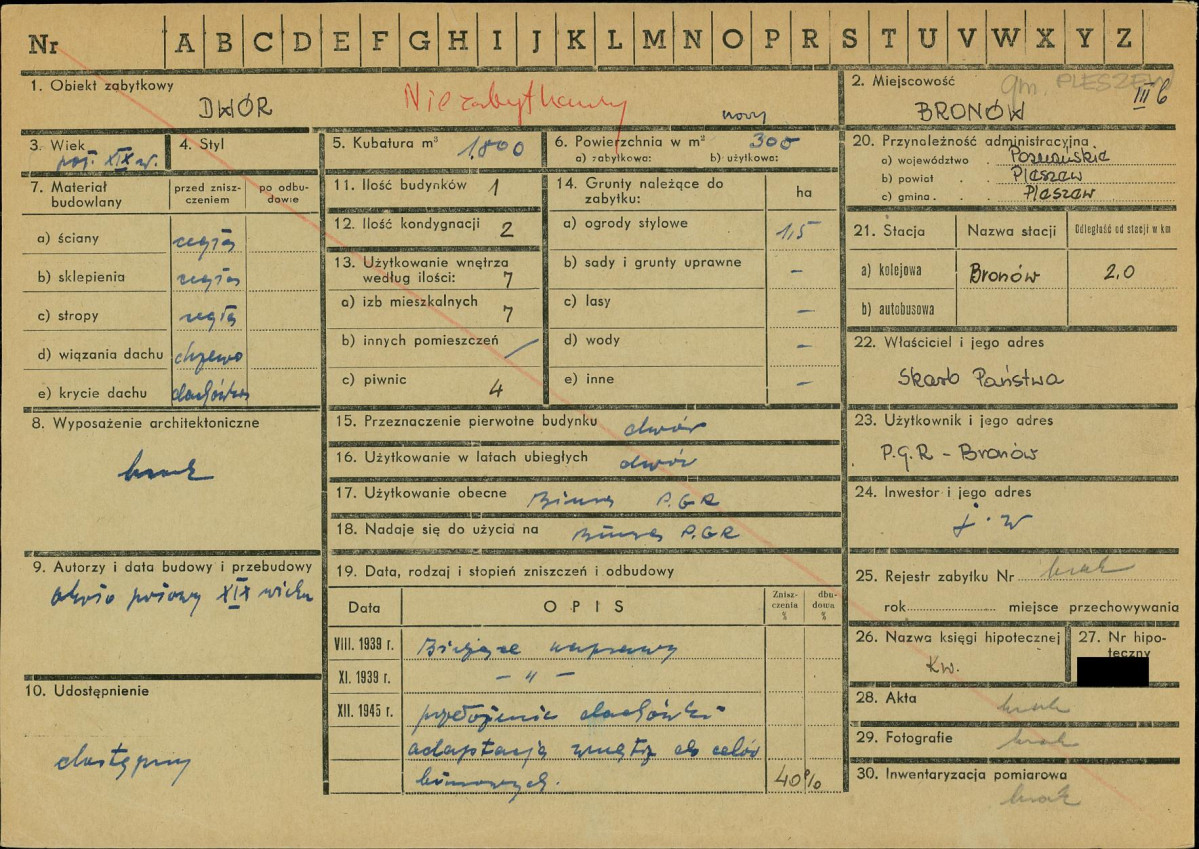 Nr A B C D E F G H I J K L M N O P R S T U V W X Y Z
1. Obiekt zabytkowy
DWÓR
Niezabytkowy
nowy
2. Miejscowość
gm. PLESZEW
III 6
BRONÓW
3. Wiek
poł. XIX w.
4. Styl
5. Kubatura m³ 1.800
6. Powierzchnia w m² 300
a) zabytkowa: b) użytkowa:
7. Materiał budowlany
przed zniszczeniem
po odbudowie
a) ściany cegła
b) sklepienia cegła
c) stropy cegła
d) wiązania dachu drzewo
e) krycie dachu dachówka
8. Wyposażenie architektoniczne
brak
9. Autorzy i data budowy i przebudowy
około połowy XIX wieku
10. Udostępnienie
dostępny
11. Ilość budynków 1
12. Ilość kondygnacji 2
13. Użytkowanie wnętrza według ilości: 7
a) izb mieszkalnych 7
b) innych pomieszczeń /
c) piwnic 4
14. Grunty należące do zabytku:
ha
a) ogrody stylowe 1,5
b) sady i grunty uprawne –
c) lasy –
d) wody –
e) inne –
15. Przeznaczenie pierwotne budynku dwór
16. Użytkowanie w latach ubiegłych dwór
17. Użytkowanie obecne Biura P.GR
18. Nadaje się do użycia na Biura P.GR
19. Data, rodzaj i stopień zniszczeń i odbudowy
Data
OPIS
Zniszczenia %
dbudowa %
VIII. 1939 r. Bieżące naprawy
XI. 1939 r. – " –
XII. 1945 r. przełożenie dachówki
adaptacja wnętrz do celów
biurowych. 40%
20. Przynależność administracyjna
a) województwo . Poznańskie
b) powiat . . Pleszew
c) gmina . . . Pleszew
21. Stacja
Nazwa stacji
Odległość od stacji w km
a) kolejowa Bronów 2.0
b) autobusowa
22. Właściciel i jego adres
Skarb Państwa
23. Użytkownik i jego adres
P.G.R - Bronów
24. Inwestor i jego adres
j. w
25. Rejestr zabytku Nr brak
rok miejsce przechowywania
26. Nazwa księgi hipotecznej
Kw.
27. Nr hipoteczny
28. Akta brak
29. Fotografie brak
30. Inwentaryzacja pomiarowa
brak